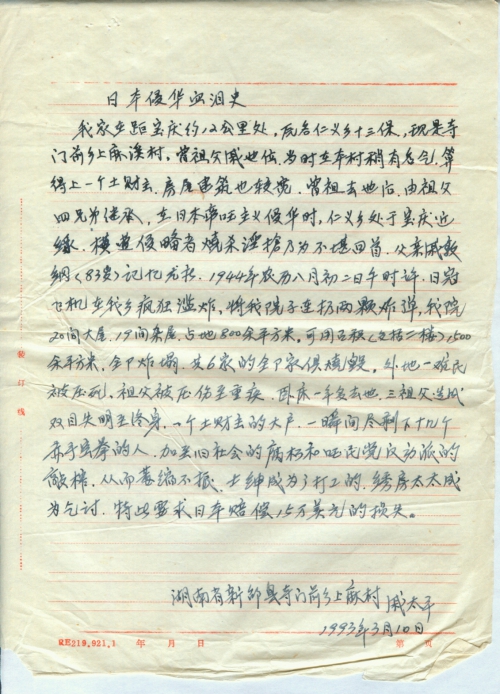 日本侵华血泪史
我家在距宝庆约12公里处，原名仁义乡十三保，现是寺
门前乡上麻溪村，曾祖父戚也位，当时在本村稍有名气，算
得上一个土财主，房屋建筑也较宽，曾祖去世后，由祖父
四兄弟继承，在日本帝国主义侵华时，仁义乡处于宝庆近
缘，横遭侵略者烧杀淫抢乃为不堪回首，父亲戚敦
纲（83岁）记忆尤新，1944年农历八月初二日午时许，日寇
飞机在我乡疯狂滥炸，将我院子连扔两颗炸弹，我院
20间大屋，19间杂屋，占地800余平方米，可用面积（包括二楼）1500
余平方米，全部炸塌，其6家的全部家俱烧毁，外地一难民
被压死，祖父被压伤至重疾，卧床一年多去世，三祖父造成
双目失明至终身，一个土财主的大户，一瞬间尽剩下十几个
赤手空拳的人，加至旧社会的腐朽和国民党反动派的
敲榨，从而萎缩不振，士绅成为了打工的，绣房太太成
为乞讨，特此要求日本赔偿15万美元的损失。
湖南省新邵县寺门前乡上麻村 戚太平
1993年3月10日
装订线
RE219.921.1 年 月 日 第 页